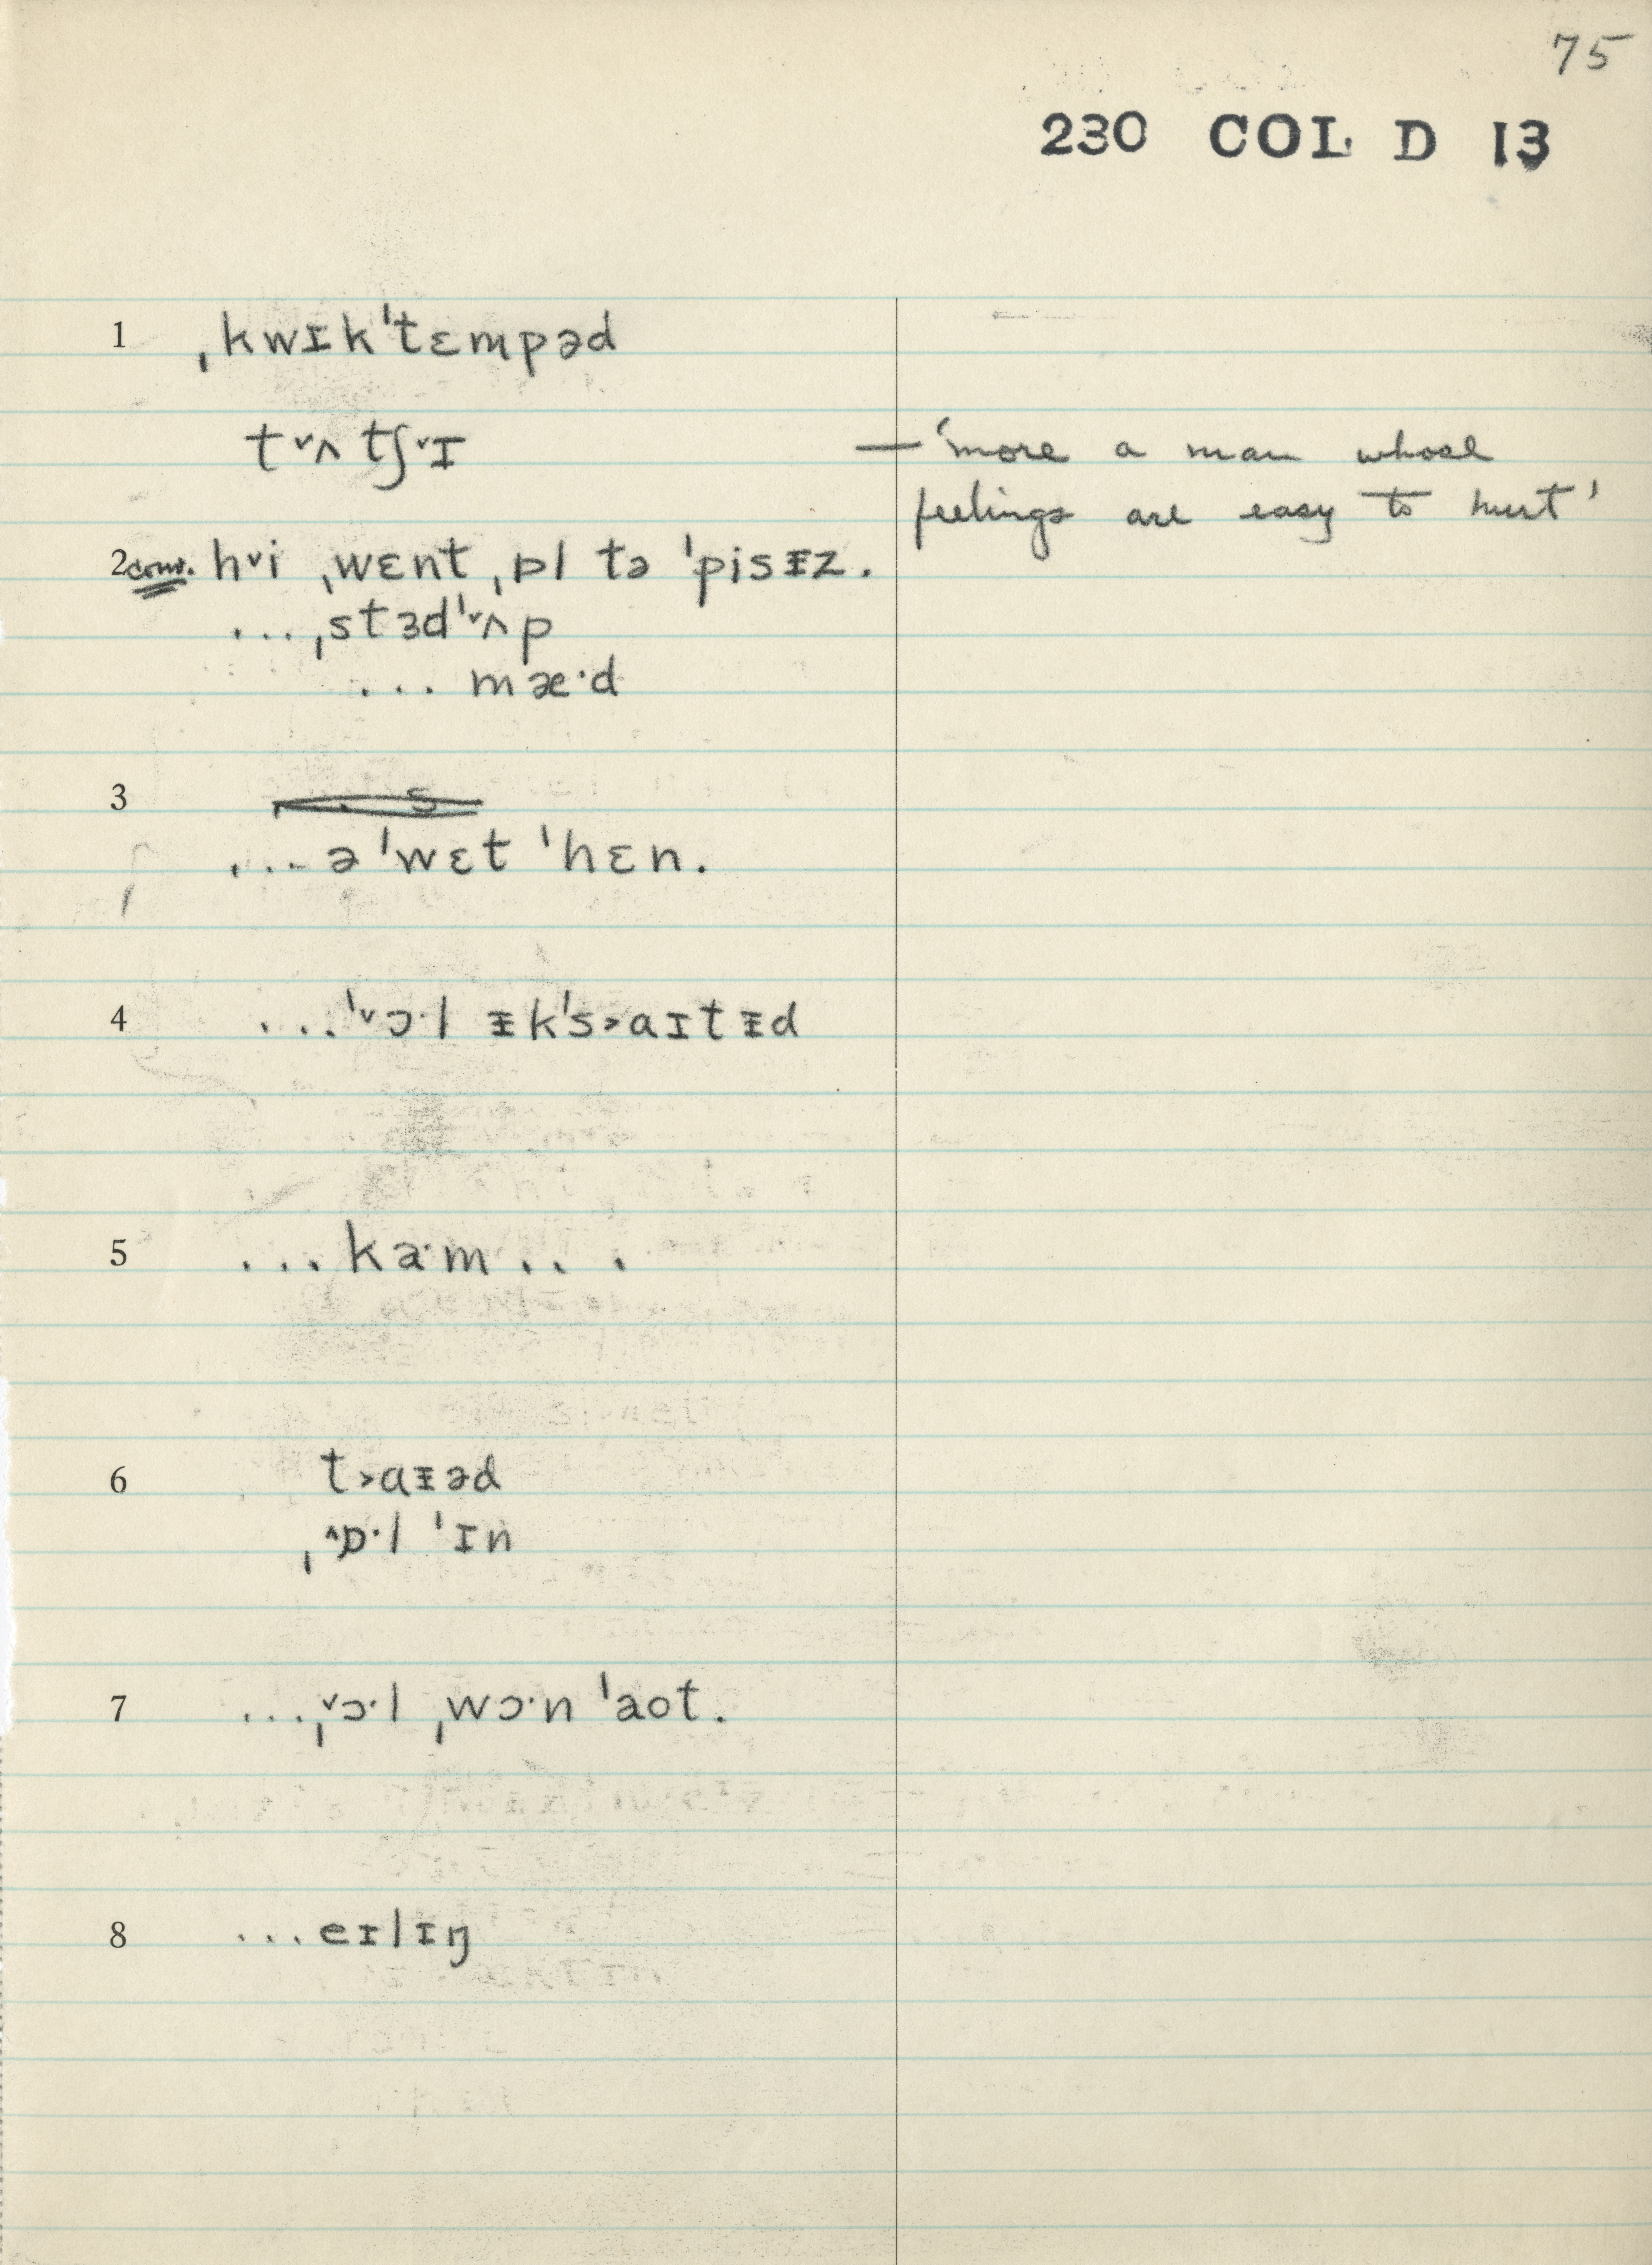 75
230 COL D 13
1 ˌkwɪkˈtɛmpəd
t˅ʌtʃ˅ɪ — 'more a man whose
feelings are easy to hurt'
2 conv. h˅i ˌwɛnt ˌɒl tə ˈpisᵻz.
...ˌstɜdˈ˅ʌp
... mæ·d
3
...ə ˈwɛt ˈhɛn.
4 ...ˈ˅ɔ·l ᵻkˈs˃aɪtᵻd
5 ...kə·m...
6 t˃aᵻəd
ˌ˄ɒ·l ˈɪn
7 ...ˌ˅ɔ·l ˌwɔ·n ˈaot.
8 ...eɪlɪŋ